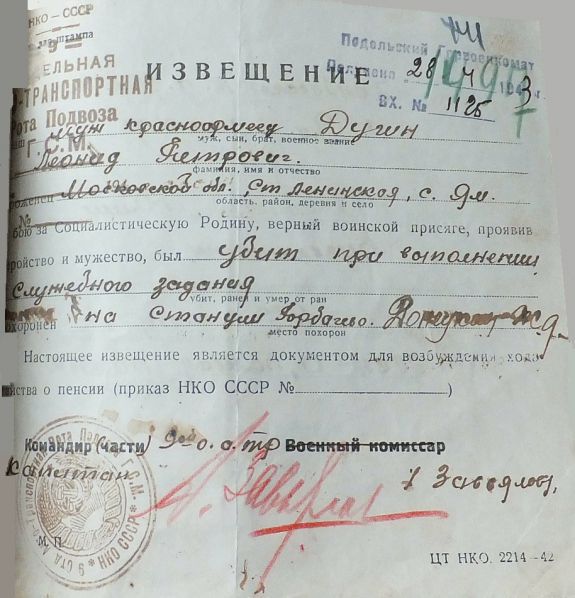 НКО — СССР
для штампа
ЕЛЬНАЯ
ТРАНСПОРТНАЯ
Рота Подвоза
Г.С.М.
Подольский Горвоенкомат
Получено 28 194 3 г.
ВХ. № 1125
ИЗВЕЩЕНИЕ
муж красноармеец Дугин
муж, сын, брат, военное звание
Леонид Петрович.
фамилия, имя и отчество
Московской обл., Ст. Ленинская, с. Ям.
область, район, деревня и село
бою за Социалистическую Родину, верный воинской присяге, проявив
ройство и мужество, был убит при выполнении
служебного задания
убит, ранен и умер от ран
похоронен на Станции
место похорон
Настоящее извещение является документом для возбуждения хода
йства о пенсии (приказ НКО СССР № )
Командир (части) Военный комиссар
Капитан / Завьялов/
М. П.
9 НКО СССР
ЦТ НКО. 2214—42